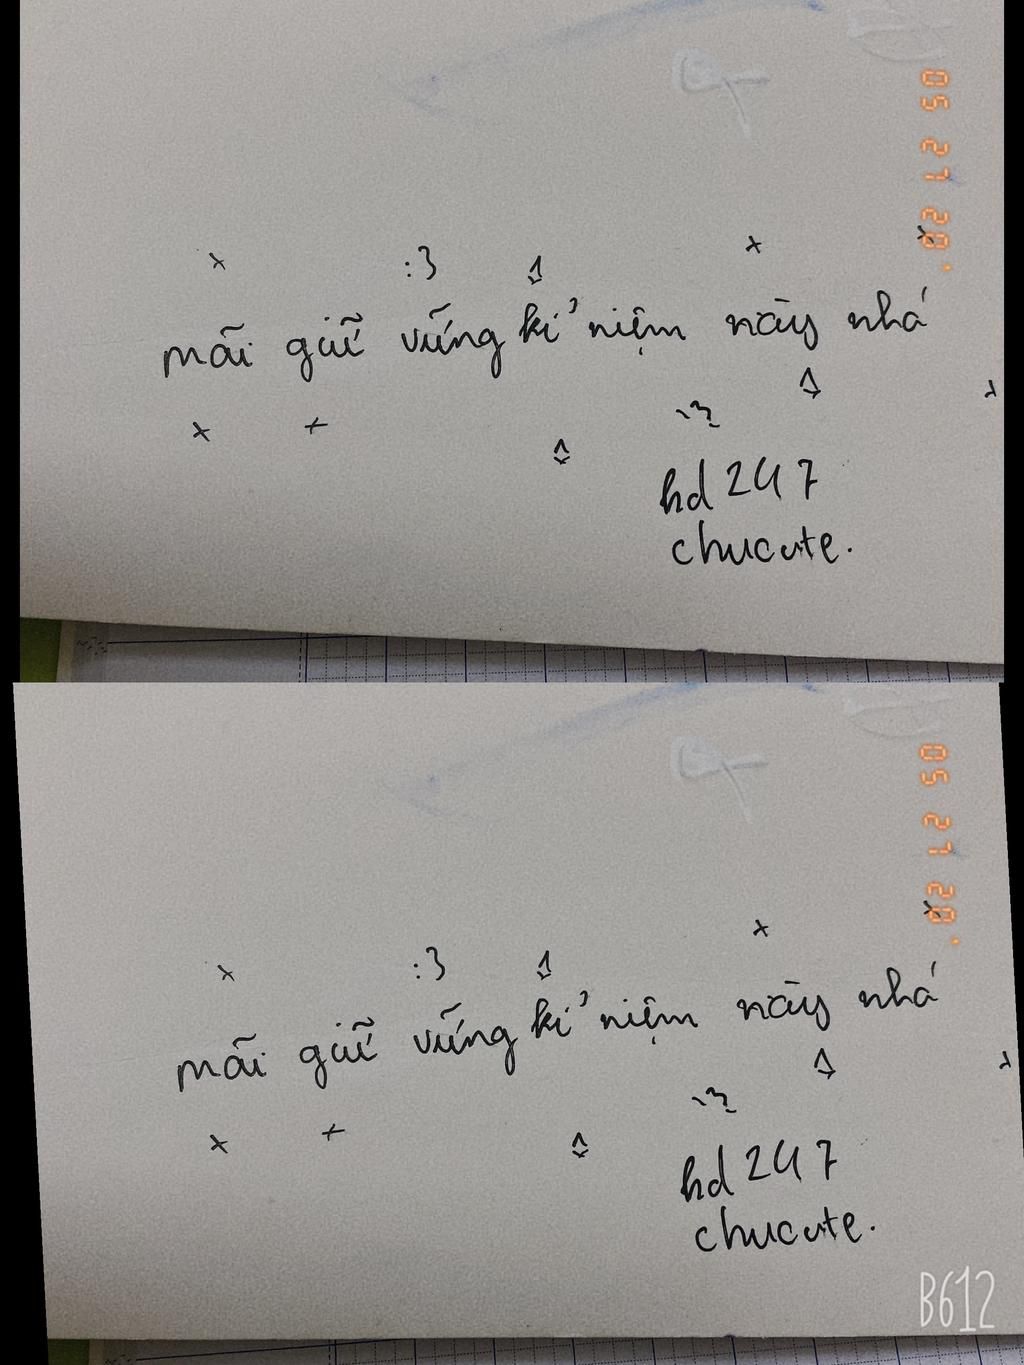 05 27 20'
:3
mãi giữ vững kỉ niệm này nhá
:3
hd 247
chucute.
05 27 20'
:3
mãi giữ vững kỉ niệm này nhá
:3
hd 247
chucute.
B612